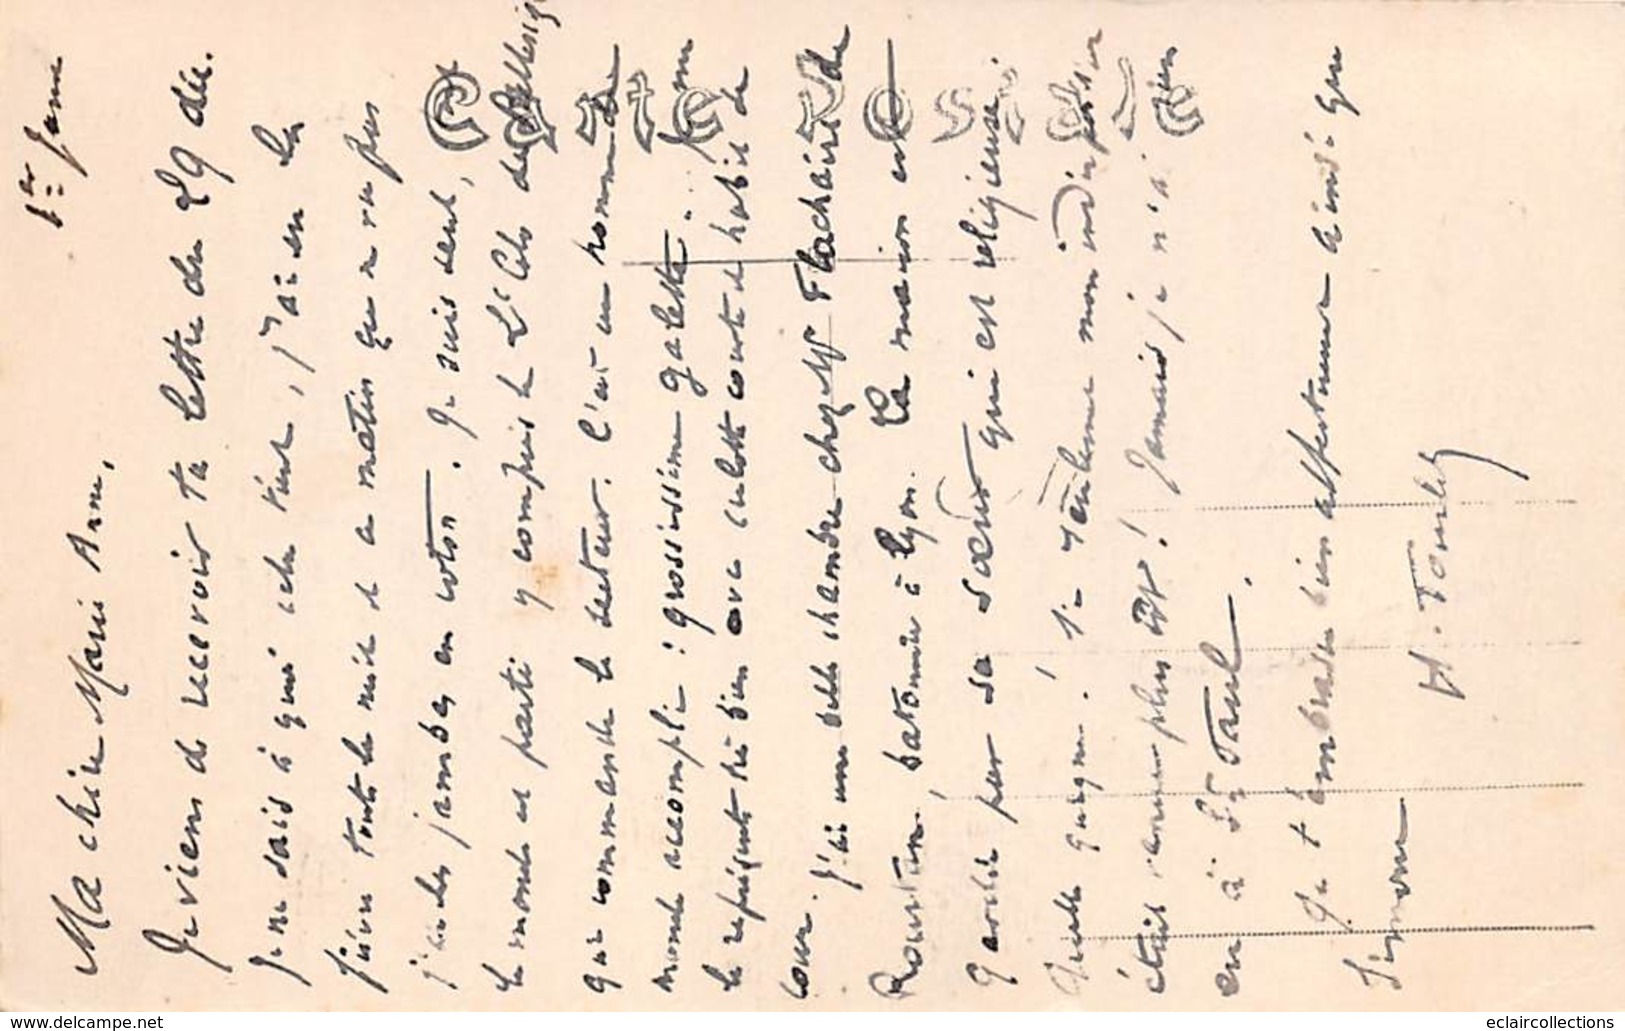 1er Janv
Ma chère Marie Anne,
Je viens de recevoir ta lettre du 29 déc.
Je ne sais à quoi cela tient, j'ai eu la
fièvre toute la nuit et ce matin que ne vu pas
j'ai les jambes en coton. Je suis seul, tout
le monde est parti y compris le Lt Colo de
qui commande le secteur. C'est un homme du
monde accompli : grossissime galette. Je me
le représente très bien avec culotte courte et habit de
cour. J'ai une belle chambre chez Mr Flachaire de
Roustan, batonnier à Lyon. La maison est
gardée par sa sœur qui est religieuse.
Quelle guigne ! Si seulement mon indisposition
était venue plus tôt ! Jamais je n'ai rien
eu à St Paul.
Je t'embrasse bien affectueusement ainsi que
Simone
H.
Carte Postale
eclaircollections